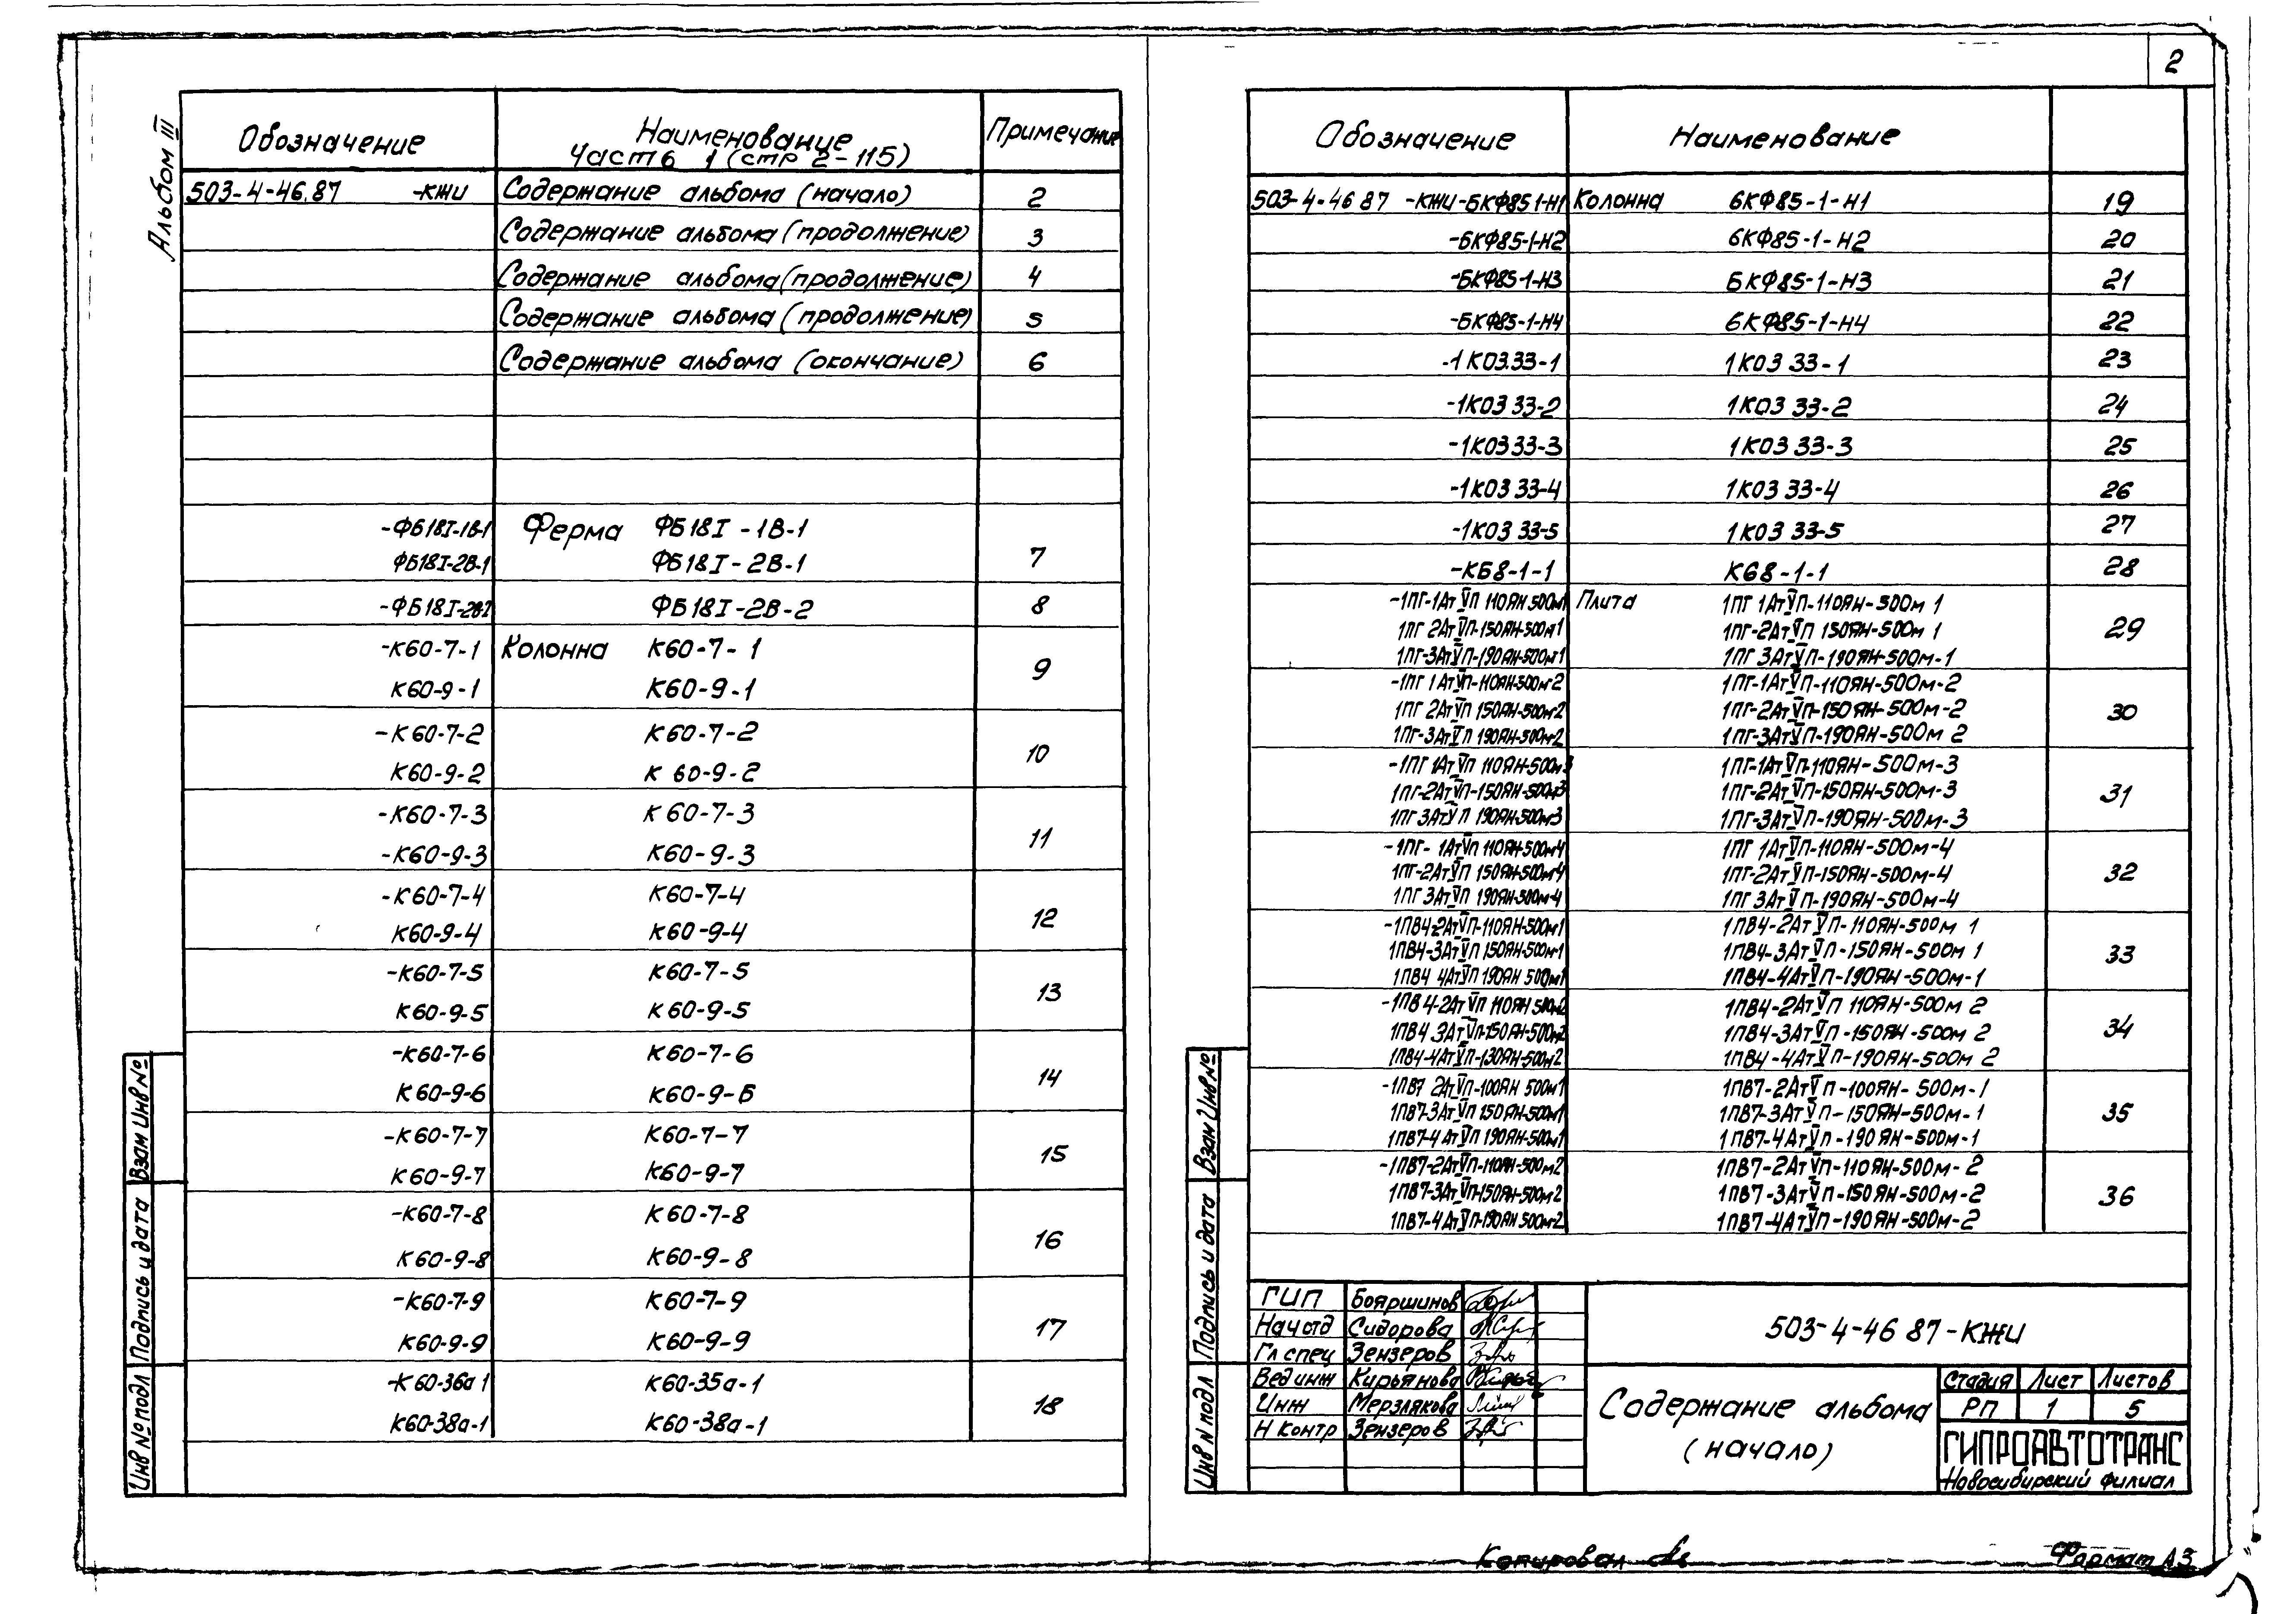 2
Альбом III
Обозначение Наименование Примечание
Часть 1 (стр 2-115)
503-4-46.87 -КЖИ Содержание альбома (начало) 2
Содержание альбома (продолжение) 3
Содержание альбома (продолжение) 4
Содержание альбома (продолжение) 5
Содержание альбома (окончание) 6
-ФБ18I-1В-1 Ферма ФБ18I-1В-1
ФБ18I-2В-1 ФБ18I-2В-1 7
-ФБ18I-2В-2 ФБ18I-2В-2 8
-К60-7-1 Колонна К60-7-1
К60-9-1 К60-9-1 9
-К60-7-2 К60-7-2
К60-9-2 К 60-9-2 10
-К60-7-3 К60-7-3
-К60-9-3 К60-9-3 11
-К60-7-4 К60-7-4
К60-9-4 К60-9-4 12
-К60-7-5 К60-7-5
К60-9-5 К60-9-5 13
-К60-7-6 К60-7-6
К60-9-6 К60-9-6 14
-К60-7-7 К60-7-7
К60-9-7 К60-9-7 15
-К60-7-8 К60-7-8
К60-9-8 К60-9-8 16
-К60-7-9 К60-7-9
К60-9-9 К60-9-9 17
-К60-36а 1 К60-35а-1
К60-38а-1 К60-38а-1 18
Инв № подл Подпись и дата Взам Инв №
Обозначение Наименование
503-4-46 87 -КЖИ-6КФ85 1-Н1 Колонна 6КФ85-1-Н1 19
-6КФ85-1-Н2 6КФ85-1-Н2 20
-6КФ85-1-Н3 6КФ85-1-Н3 21
-6КФ85-1-Н4 6КФ85-1-Н4 22
-1К03.33-1 1К03 33-1 23
-1К03 33-2 1К03 33-2 24
-1К03 33-3 1К03 33-3 25
-1К03 33-4 1К03 33-4 26
-1К03 33-5 1К03 33-5 27
-К68-1-1 К68-1-1 28
-1ПГ-1АтVП 110ЯН 500м1 Плита 1ПГ 1АтVП-110ЯН-500м 1
1ПГ 2АтVП-150ЯН-500м1 1ПГ-2АтVП 150ЯН-500м 1 29
1ПГ-3АтVП-190ЯН-500м1 1ПГ 3АтVП-190ЯН-500м-1
-1ПГ 1АтVП-110ЯН-500м-2 1ПГ-1АтVП-110ЯН-500м-2
1ПГ 2АтVП 150ЯН-500м2 1ПГ-2АтVП-150ЯН-500м-2 30
1ПГ-3АтVП 190ЯН-500м2 1ПГ-3АтVП-190ЯН-500м 2
-1ПГ 1АтVП 110ЯН-500м3 1ПГ-1АтVП-110ЯН-500м-3
1ПГ-2АтVП-150ЯН-500м3 1ПГ-2АтVП-150ЯН-500м-3 31
1ПГ 3АтVП 190ЯН-500м3 1ПГ-3АтVП-190ЯН-500м-3
-1ПГ- 1АтVП 110ЯН-500м4 1ПГ 1АтVП-110ЯН-500м-4
1ПГ-2АтVП 150ЯН-500м4 1ПГ-2АтVП-150ЯН-500м-4 32
1ПГ 3АтVП 190ЯН-500м-4 1ПГ 3АтVП-190ЯН-500м-4
-1ПВ4-2АтVП-110ЯН-500м1 1ПВ4-2АтVП-110ЯН-500м 1
1ПВ4-3АтVП 150ЯН-500м-1 1ПВ4-3АтVП-150ЯН-500м 1 33
1ПВ4 4АтVП 190ЯН 500м1 1ПВ4-4АтVП-190ЯН-500м-1
-1ПВ 4-2АтVП 110ЯН 500м2 1ПВ4-2АтVП 110ЯН-500м 2
1ПВ4 3АтVП-150ЯН-500м2 1ПВ4-3АтVП-150ЯН-500м 2 34
1ПВ4-4АтVП-130ЯН-500м2 1ПВ4-4АтVП-190ЯН-500м 2
-1ПВ7 2АтVП-100ЯН 500м1 1ПВ7-2АтVП-100ЯН-500м-1
1ПВ7-3АтVП 150ЯН-500м1 1ПВ7-3АтVП-150ЯН-500м-1 35
1ПВ7-4АтVП 190ЯН-500м1 1ПВ7-4АтVП-190ЯН-500м-1
-1ПВ7-2АтVП-110ЯН-500м2 1ПВ7-2АтVП-110ЯН-500м-2
1ПВ7-3АтVП-150ЯН-500м2 1ПВ7-3АтVП-150ЯН-500м-2 36
1ПВ7-4АтVП-190ЯН 500м-2 1ПВ7-4АтVП-190ЯН-500м-2
Инв № подл Подпись и дата Взам Инв №
ГИП Бояршинов
Нач отд Сидорова
Гл спец Зензеров
Вед инж Кирьянова
Инж Мерзлякова
Н контр Зензеров
503-4-46 87-КЖИ
Содержание альбома
(начало)
Стадия Лист Листов
РП 1 5
ГИПРОАВТОТРАНС
Новосибирский филиал
Копировал
Формат А3